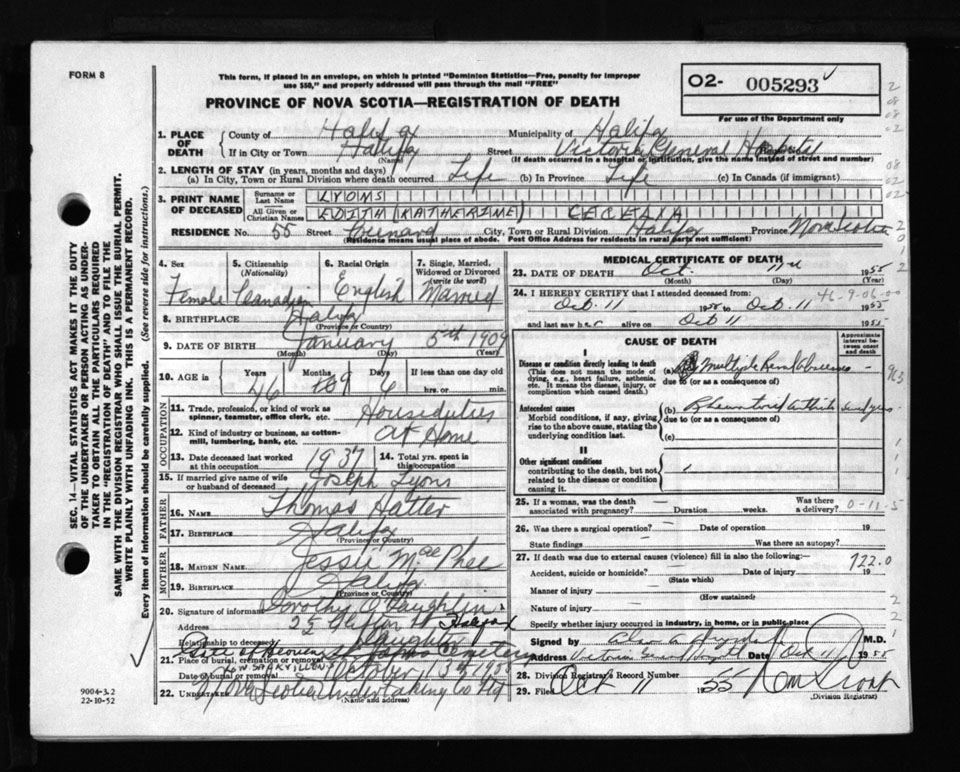 FORM 8
This form, if placed in an envelope, on which is printed "Dominion Statistics—Free, penalty for improper
use $50," and properly addressed will pass through the mail "FREE"
PROVINCE OF NOVA SCOTIA—REGISTRATION OF DEATH
O2- 005293
For use of the Department only
1. PLACE OF DEATH
County of Halifax Municipality of Halifax
If in City or Town Halifax Street Victoria General Hospital
(Name) (If death occurred in a hospital or institution, give the name instead of street and number)
2. LENGTH OF STAY (in years, months and days)
(a) In City, Town or Rural Division where death occurred Life (b) In Province Life (c) In Canada (if immigrant)
3. PRINT NAME OF DECEASED
Surname or Last Name LYONS
All Given or Christian Names EDITH (KATHERINE) CECELIA
RESIDENCE No. 55 Street City, Town or Rural Division Halifax Province Nova Scotia
(Residence means usual place of abode. Post Office Address for residents in rural parts not sufficient)
4. Sex Female
5. Citizenship (Nationality) Canadian
6. Racial Origin English
7. Single, Married, Widowed or Divorced (write the word) Married
8. BIRTHPLACE Halifax
(Province or Country)
9. DATE OF BIRTH January 5th 1909
(Month) (Day) (Year)
10. AGE in Years 46 Months 9 Days 6 If less than one day old
hrs. or min.
OCCUPATION
11. Trade, profession, or kind of work as spinner, teamster, office clerk, etc. Houseduties
12. Kind of industry or business, as cotton-mill, lumbering, bank, etc. At Home
13. Date deceased last worked at this occupation 1937
14. Total yrs. spent in this occupation
15. If married give name of wife or husband of deceased Joseph Lyons
FATHER
16. NAME Thomas Hatter
17. BIRTHPLACE Halifax
(Province or Country)
MOTHER
18. MAIDEN NAME Jessie MacPhee
19. BIRTHPLACE Halifax
(Province or Country)
20. Signature of informant Dorothy
Address 25 Clifton St Halifax
Relationship to deceased Daughter
21. Place of burial, cremation or removal Gate of Heaven Cemetery
LW. SACKVILLE N.S
Date of burial or removal October 13th 1955
22. UNDERTAKER Nova Scotia Undertaking Co Ltd
(Name and address)
MEDICAL CERTIFICATE OF DEATH
23. DATE OF DEATH Oct. 11th 1955
(Month) (Day) (Year)
24. I HEREBY CERTIFY that I attended deceased from:
Oct. 11 1955 to Oct 11 1955
46-9-06-00
and last saw her alive on Oct 11 1955
CAUSE OF DEATH
Approximate interval between onset and death
I
Disease or condition directly leading to death
(This does not mean the mode of dying, e.g., heart failure, asthenia, etc. It means the disease, injury, or complication which caused death.)
(a) Multiple Renal Abscesses
due to (or as a consequence of)
Antecedent causes
Morbid conditions, if any, giving rise to the above cause, stating the underlying condition last.
(b) Rheumatoid Arthritis
due to (or as a consequence of)
(c)
II
Other significant conditions
contributing to the death, but not related to the disease or condition causing it.
25. If a woman, was the death associated with pregnancy? Duration weeks. Was there a delivery? 0-11-5
26. Was there a surgical operation? Date of operation 19
State findings Was there an autopsy?
27. If death was due to external causes (violence) fill in also the following:—
722.0
Accident, suicide or homicide? Date of injury 19
(State which)
Manner of injury
(How sustained)
Nature of injury
Specify whether injury occurred in industry, in home, or in public place
Signed by M.D.
Address Victoria General Hospital Date Oct 11 1955
28. Division Registrar's Record Number
29. Filed Oct 11 1955
(Division Registrar)
SEC. 14—VITAL STATISTICS ACT MAKES IT THE DUTY
OF THE UNDERTAKER OR PERSON ACTING AS UNDER-
TAKER TO OBTAIN ALL THE PARTICULARS REQUIRED
IN THE "REGISTRATION OF DEATH" AND TO FILE THE
SAME WITH THE DIVISION REGISTRAR WHO SHALL ISSUE THE BURIAL PERMIT.
WRITE PLAINLY WITH UNFADING INK. THIS IS A PERMANENT RECORD.
Every item of information should be carefully supplied. (See reverse side for instructions.)
9004-3.2
22-10-52